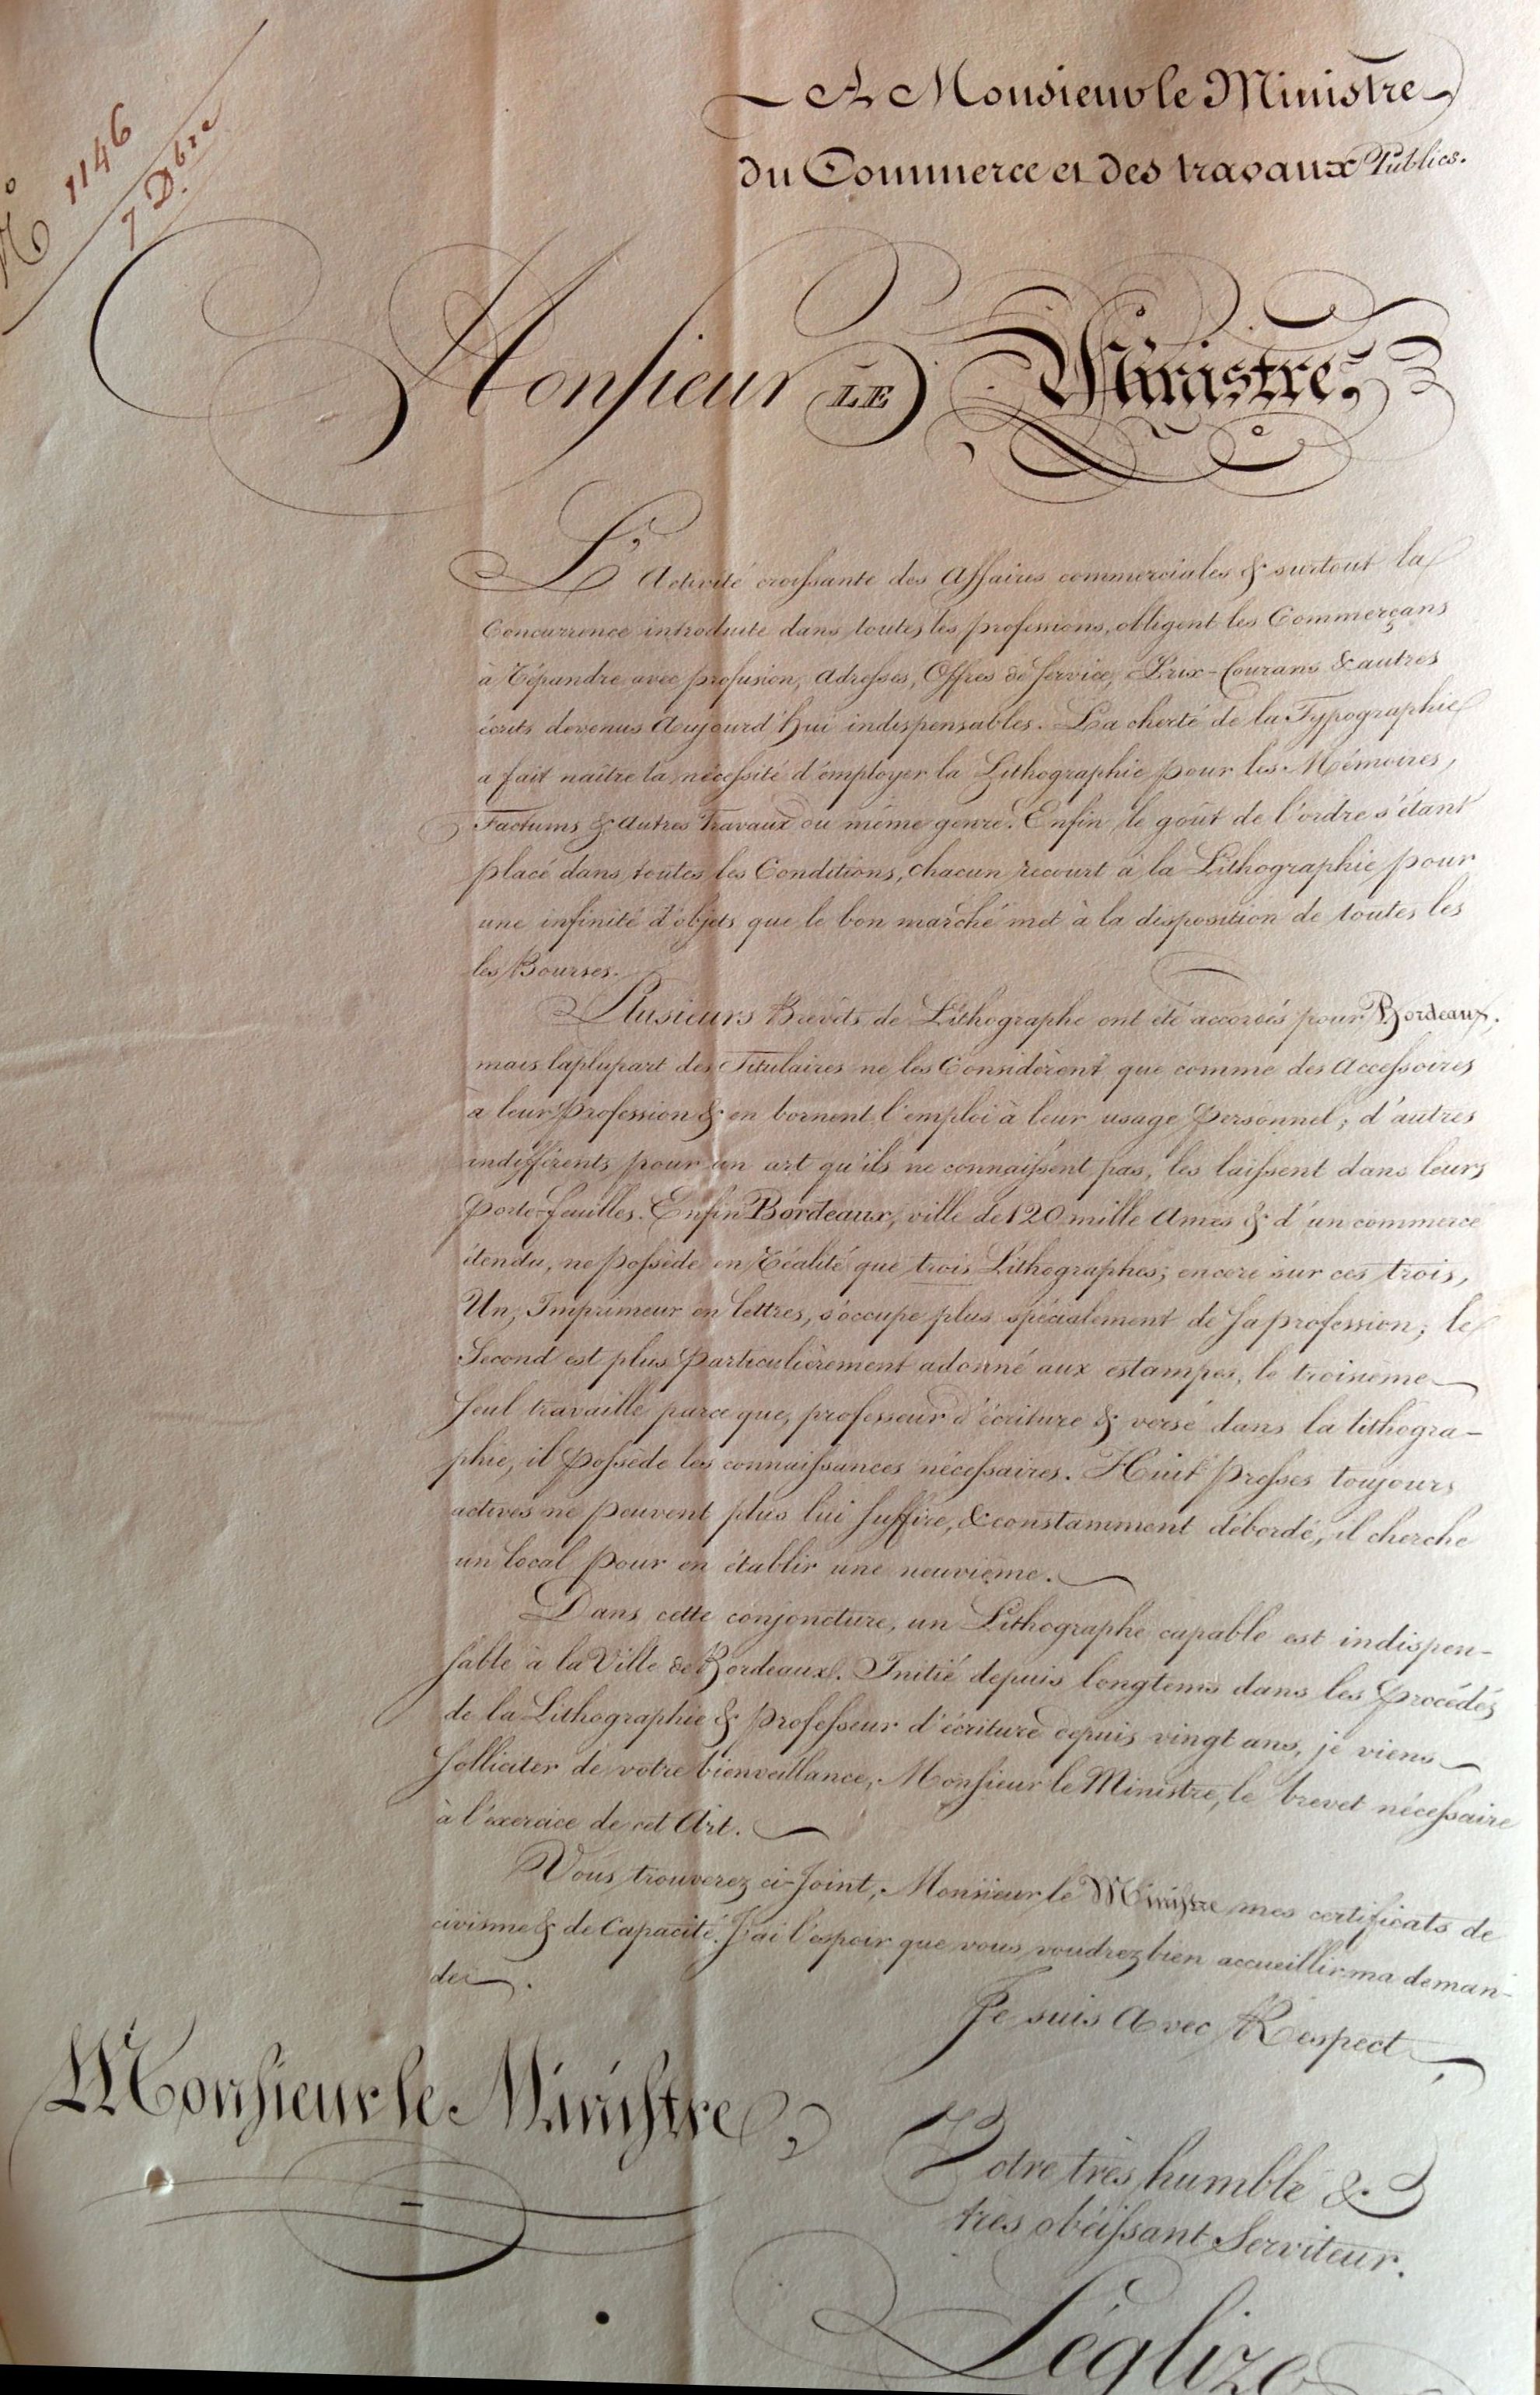 N° 1146
7 Dbre
A Monsieur le Ministre
du Commerce et des travaux Publics.
Monsieur LE Ministre,
L'Activité croissante des Affaires commerciales & surtout la
Concurrence introduite dans toutes les professions, obligent les Commerçans
à répandre avec profusion, adresses, Offres de Service, Prix-Courans & autres
écrits devenus Aujourd'hui indispensables. La cherté de la Typographie
a fait naître la nécessité d'employer la Lithographie pour les Mémoires,
Factums & autres Travaux du même genre. Enfin le goût de l'ordre s'étant
placé dans toutes les Conditions, chacun recourt à la Lithographie pour
une infinité d'objets que le bon marché met à la disposition de toutes les
les Bourses.
Plusieurs Brevets de Lithographe ont été accordés pour Bordeaux,
mais laplupart des Titulaires ne les Considèrent que comme des Accessoires
à leur Profession & en bornent l'emploi à leur usage Personnel; d'autres
indifférents pour un art qu'ils ne connaissent pas, les laissent dans leurs
Porte-feuilles. Enfin Bordeaux, ville de 120 mille Ames & d'un commerce
étendu, ne possède en Réalité que trois Lithographes; encore sur ces trois,
Un, Imprimeur en lettres, s'occupe plus spécialement de sa profession; le
Second est plus Particulièrement adonné aux estampes, le troisième
seul travaille parce que, professeur d'écriture & versé dans la lithogra-
phie, il Possède les connaissances nécessaires. Huit Presses toujours
actives ne Peuvent plus lui suffire, & constamment débordé, il cherche
un local Pour en établir une neuvième.
Dans cette conjoncture, un Lithographe capable est indispen-
sable à la Ville de Bordeaux. Initié depuis longtems dans les Procédés
de la Lithographie & Professeur d'écriture depuis vingt ans, je viens
solliciter de votre bienveillance, Monsieur le Ministre, le brevet nécessaire
à l'exercice de cet Art.
Vous trouverez ci-Joint, Monsieur le Ministre mes certificats de
civisme & de Capacité. J'ai l'espoir que vous voudrez bien accueillir ma deman-
de.
Je suis Avec Respect,
Monsieur le Ministre,
Votre très humble &
très obéissant Serviteur.
Léglize